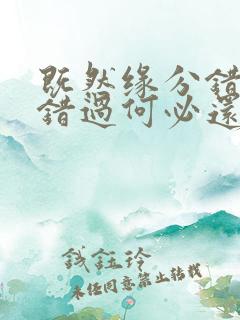 既然缘分错
错过何必还
钱钰玲
未经同意禁止转载